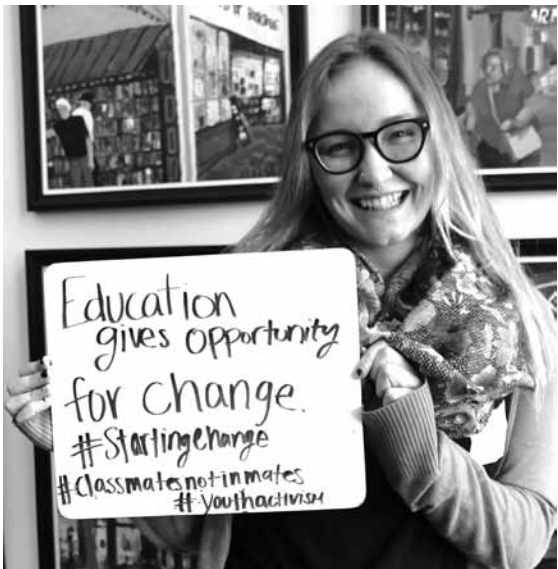 Education
gives opportunity
for change.
#StartingChange
#Classmatesnotinmates
#youthactivism